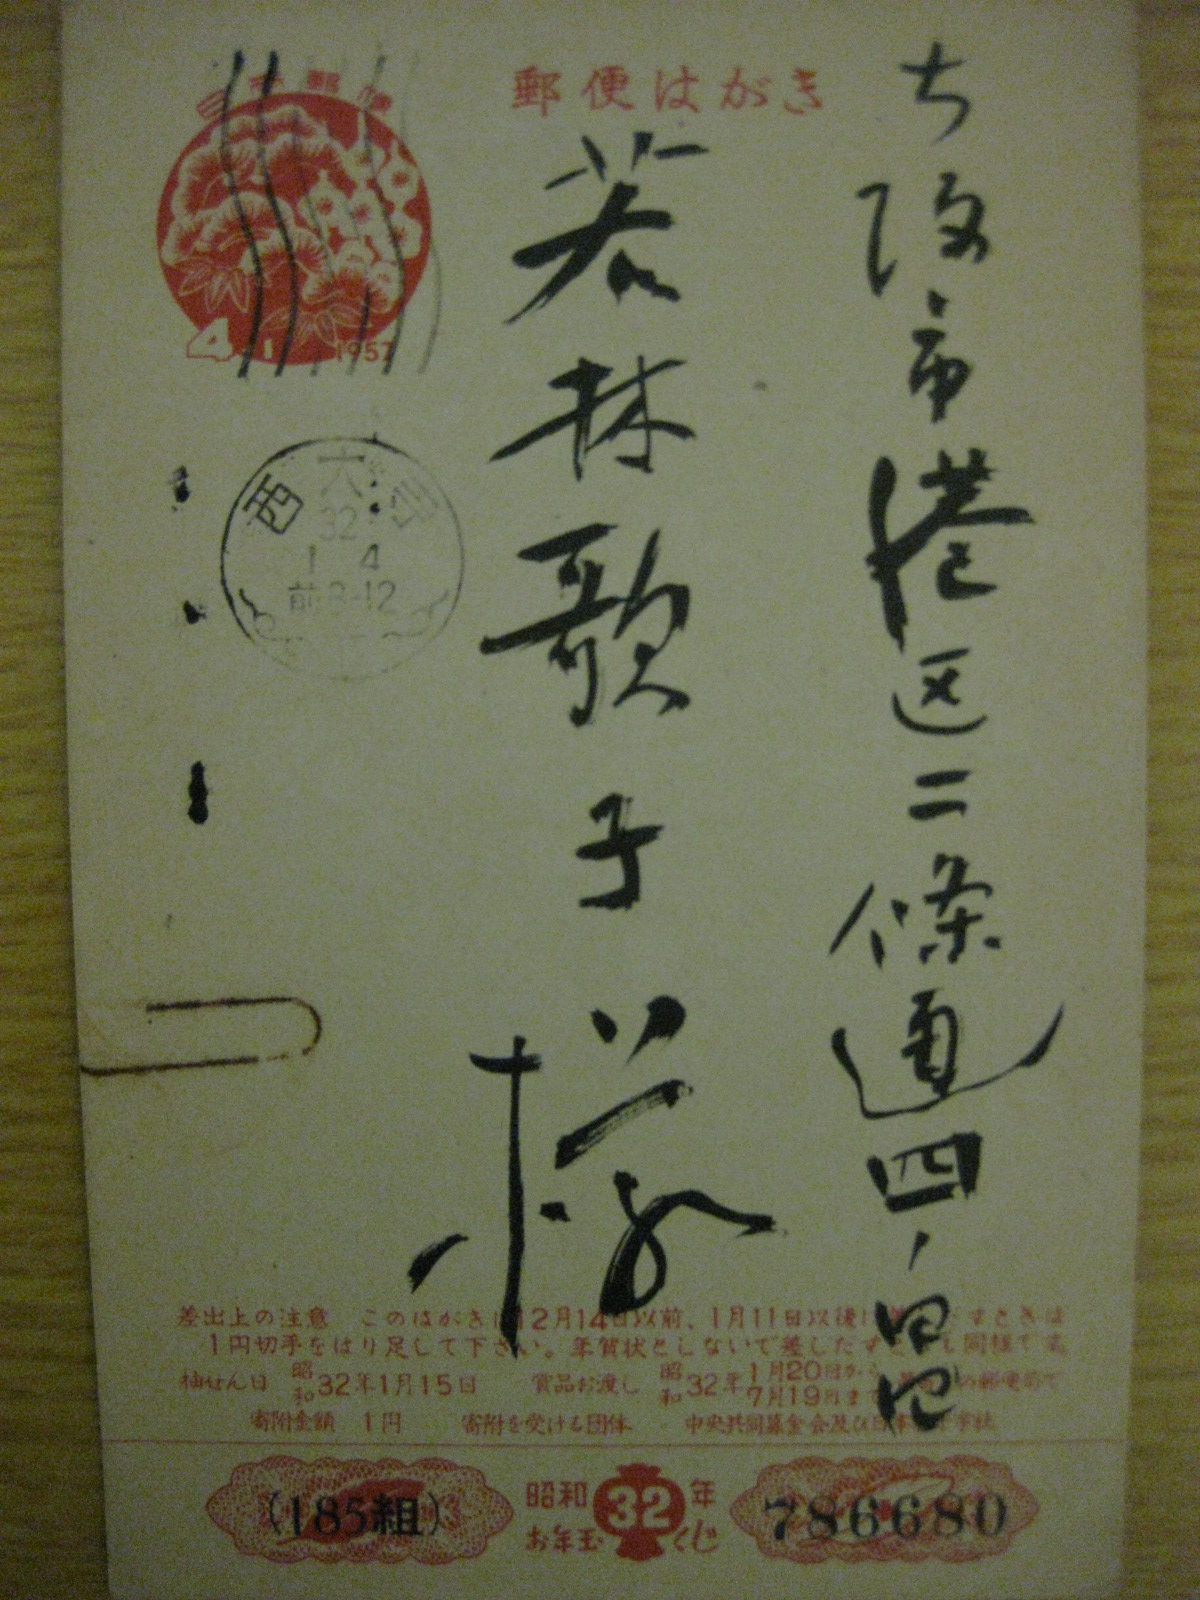 郵便はがき
大阪市港区二條通四ノ四四
若林歌子様
4+1 1957
西大寺
32
1 4
前8-12
差出上の注意 このはがきは12月14日以前、1月11日以後に差しだすときは
1円切手をはり足して下さい。年賀状としないで差しだすときも同様です。
抽せん日 昭和32年1月15日 賞品お渡し 昭和32年1月20日から7月19日まで の郵便局で
寄附金額 1円 寄附を受ける団体 中央共同募金会及び日本赤十字社
(185組) 昭和32年 お年玉くじ 786680